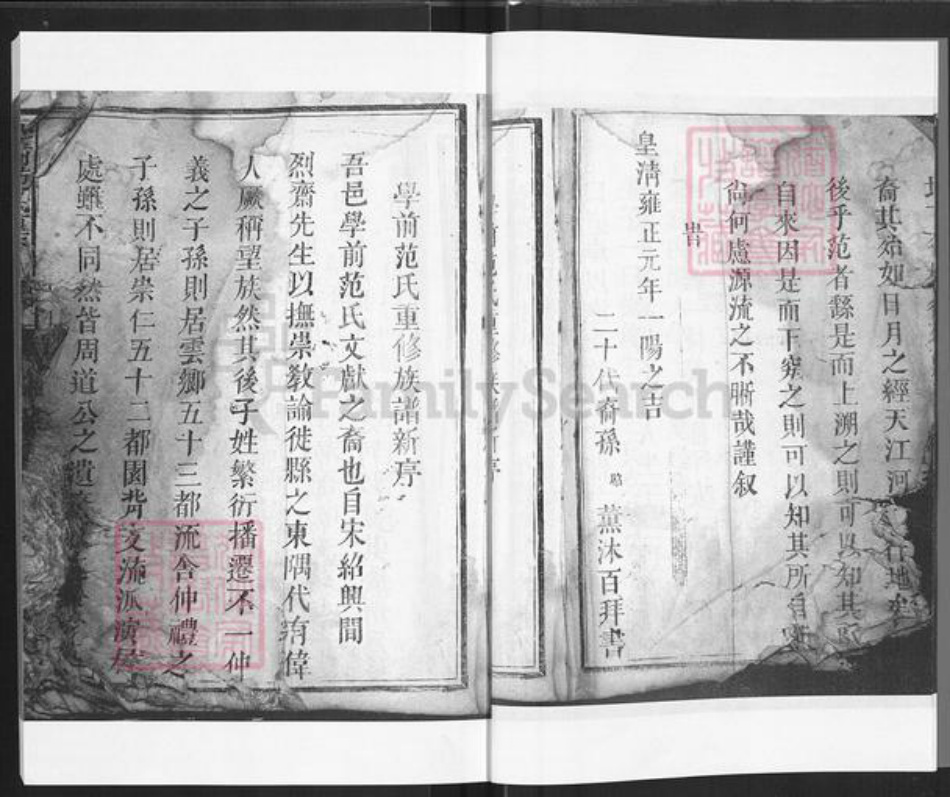 裔其始如日月之經天江河
後乎范者繇是而上溯之則可以知其所
自來因是而下窮之則可以知其所自
尚何慮源流之不晣哉謹叙
時
皇清雍正元年一陽之吉
二十代裔孫 薰沐百拜書
學前范氏重修族譜新序
吾邑學前范氏文獻之裔也自宋紹興間
烈齋先生以撫崇教諭徙縣之東隅代有偉
人厥稱望族然其後子姓繁衍播遷不一仲
義之子孫則居雲鄉五十三都流舍仲禮之
子孫則居崇仁五十二都園背支流派演居
處雖不同然皆周道公之遺
FamilySearch